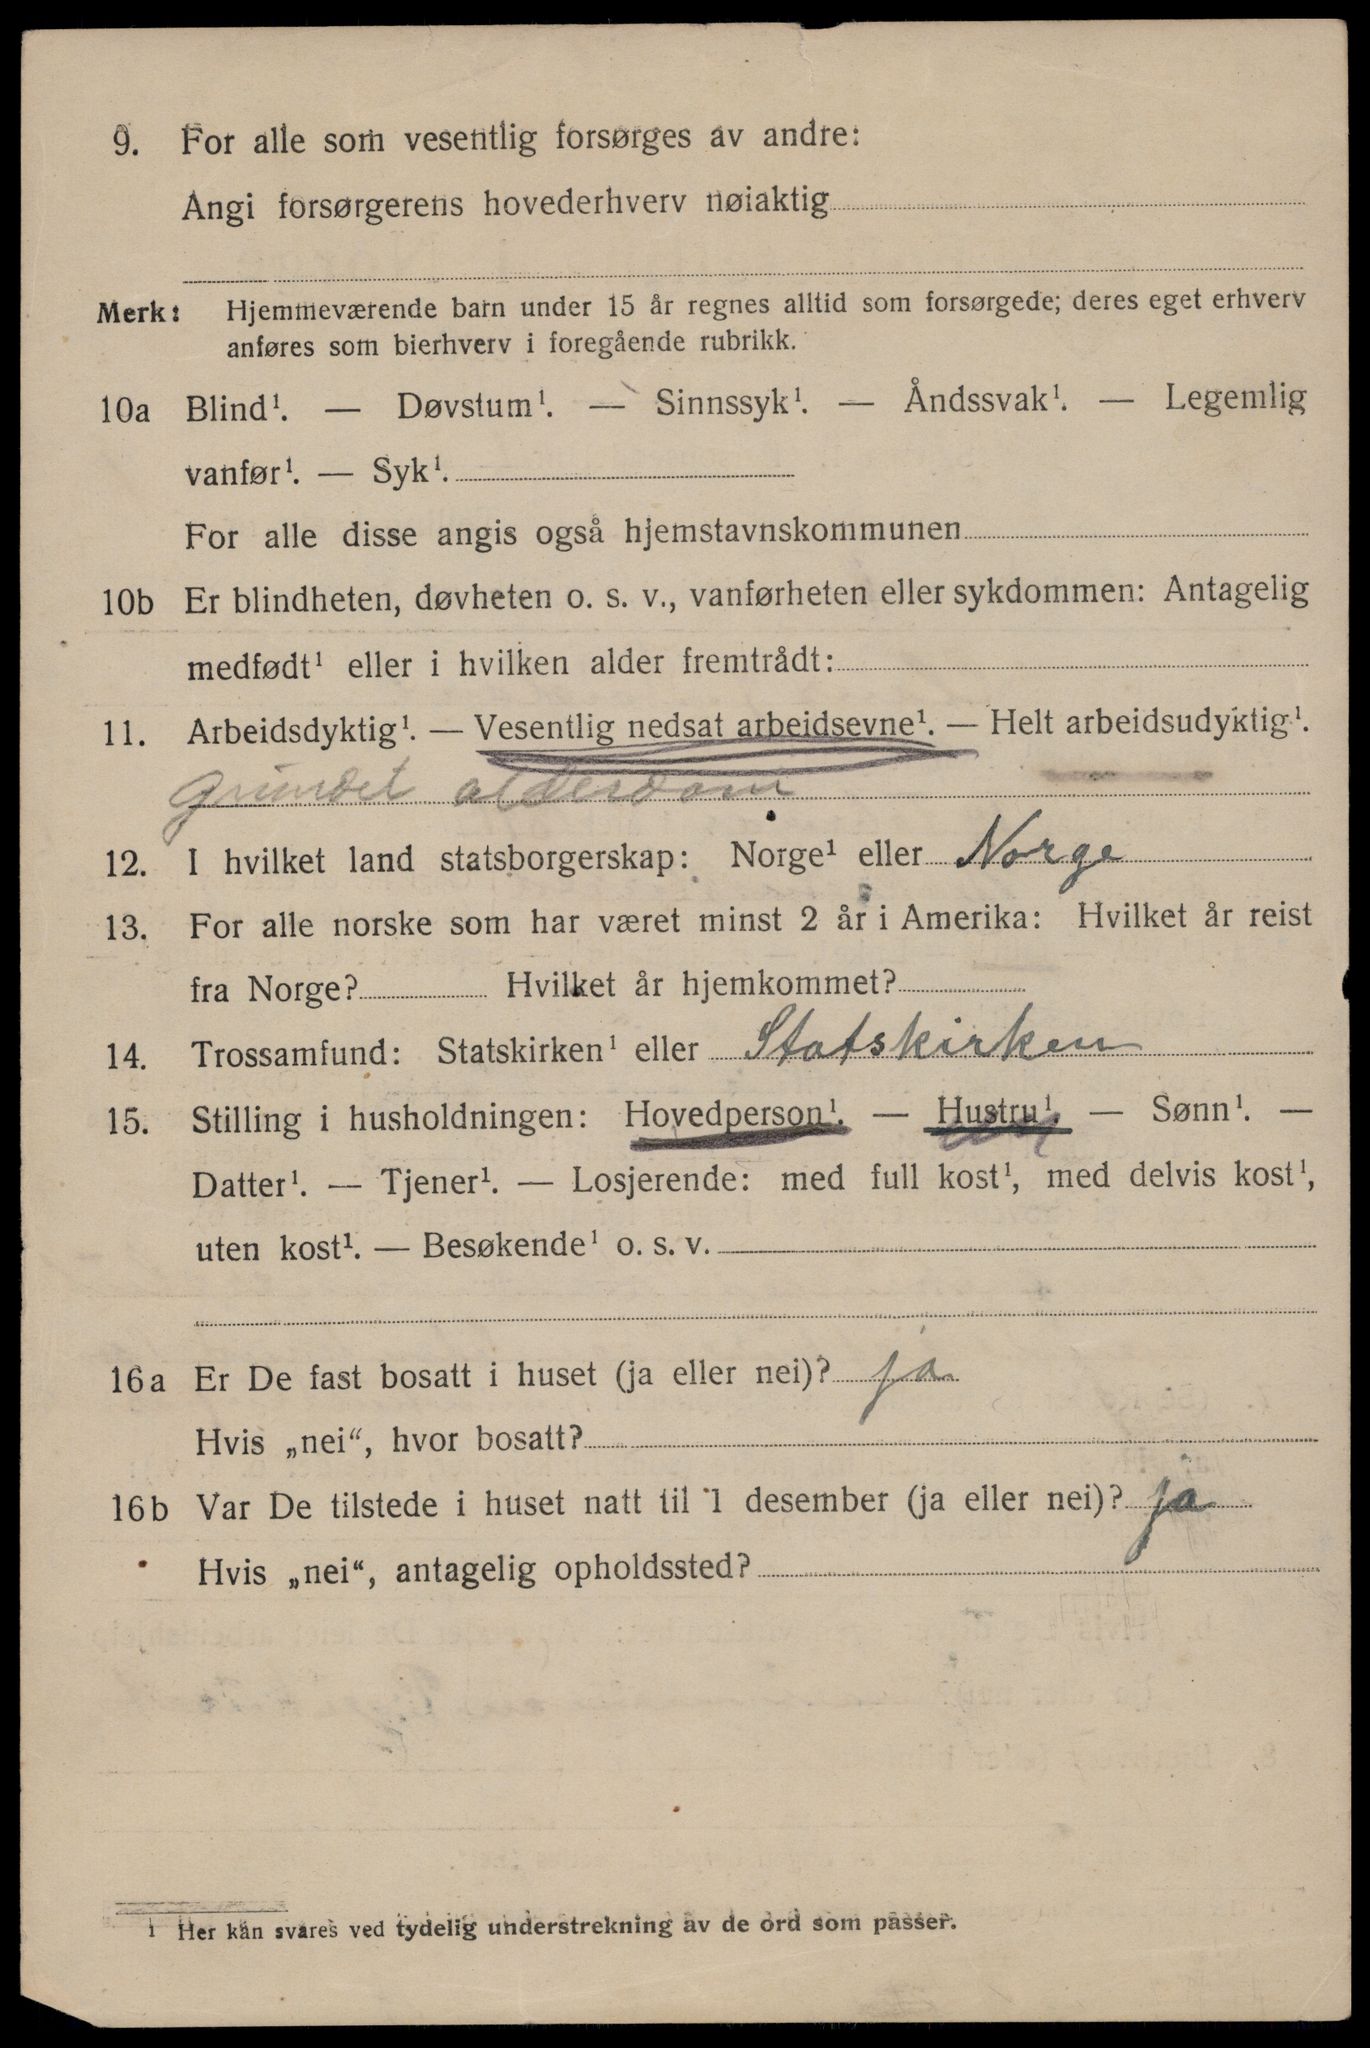 9. For alle som vesentlig forsørges av andre:
Angi forsørgerens hovederhverv nøiaktig
Merk: Hjemmeværende barn under 15 år regnes alltid som forsørgede; deres eget erhverv
anføres som bierhverv i foregående rubrikk.
10a Blind¹. — Døvstum¹. — Sinnssyk¹. — Åndssvak¹. — Legemlig
vanfør¹. — Syk¹.
For alle disse angis også hjemstavnskommunen
10b Er blindheten, døvheten o. s. v., vanførheten eller sykdommen: Antagelig
medfødt¹ eller i hvilken alder fremtrådt:
11. Arbeidsdyktig¹. — Vesentlig nedsat arbeidsevne¹. — Helt arbeidsudyktig¹.
Grundet alderdom
12. I hvilket land statsborgerskap: Norge¹ eller Norge
13. For alle norske som har været minst 2 år i Amerika: Hvilket år reist
fra Norge? Hvilket år hjemkommet?
14. Trossamfund: Statskirken¹ eller Statskirken
15. Stilling i husholdningen: Hovedperson¹. — Hustru¹. — Sønn¹. —
Datter¹. — Tjener¹. — Losjerende: med full kost¹, med delvis kost¹,
uten kost¹. — Besøkende¹ o. s. v.
16a Er De fast bosatt i huset (ja eller nei)? ja
Hvis „nei“, hvor bosatt?
16b Var De tilstede i huset natt til 1 desember (ja eller nei)? ja
Hvis „nei“, antagelig opholdssted?
1 Her kan svares ved tydelig understrekning av de ord som passer.